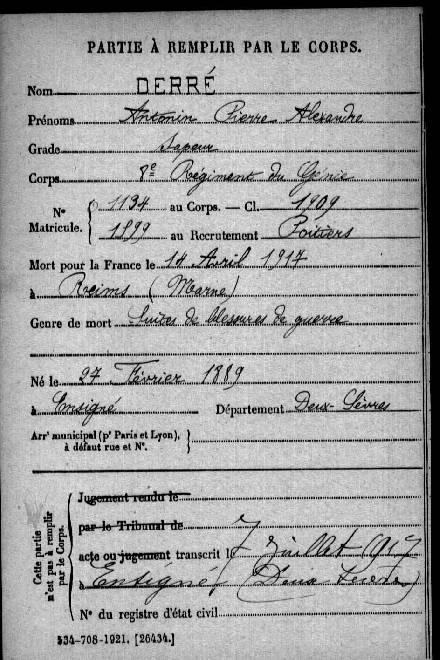 PARTIE À REMPLIR PAR LE CORPS.
Nom DERRÉ
Prénoms Antonin Pierre Alexandre
Grade Sapeur
Corps 8e Régiment du Génie
N° Matricule. { 1134 au Corps. — Cl. 1909
1899 au Recrutement Poitiers
Mort pour la France le 14 Avril 1917
à Reims (Marne)
Genre de mort Suites de blessures de guerre
Né le 27 Février 1889
à Ensigné Département Deux-Sèvres
Arrt municipal (pr Paris et Lyon), à défaut rue et N°. }
Cette partie n'est pas à remplir par le Corps. {
Jugement rendu le
par le Tribunal de
acte ou jugement transcrit le 7 Juillet 1917
à Ensigné (Deux Sèvres)
N° du registre d'état civil
534-708-1921. [26434.]